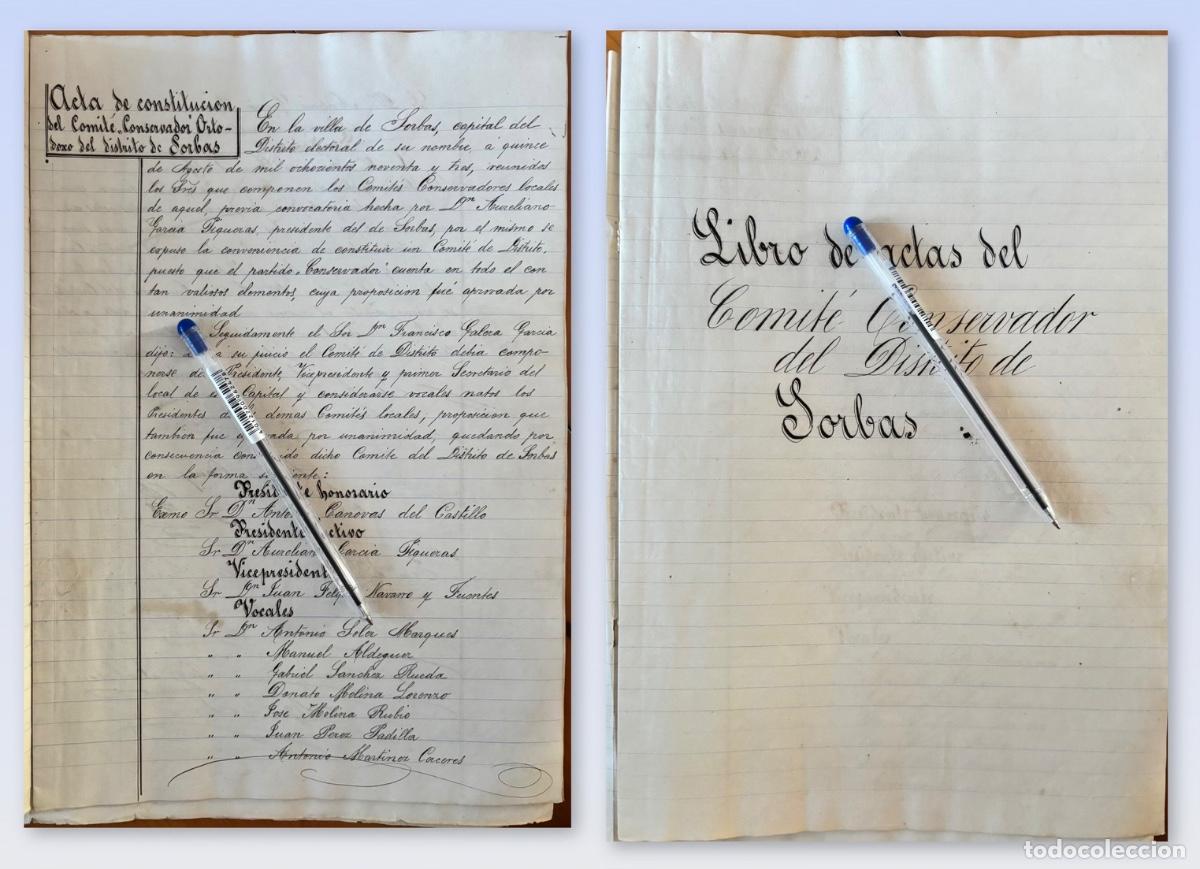 Acta de constitucion
del Comité „Conservador" Orto-
doxo del distrito de Sorbas
En la villa de Sorbas, capital del
Distrito electoral de su nombre, á quince
de Agosto de mil ochocientos noventa y tres, reunidos
los Sres que componen los Comités Conservadores locales
de aquel, previa convocatoria hecha por Dn Aureliano
Garcia Figueras, presidente del de Sorbas, por el mismo se
expuso la conveniencia de constituir un Comité de Distrito,
puesto que el partido „Conservador" cuenta en todo el con
tan valiosos elementos, cuya proposicion fué aprovada por
unanimidad
Seguidamente el Sor Dn Francisco Galera Garcia
dijo: a su juicio el Comité de Distrito debia compo-
nerse de Presidente, Vicepresidente y primer Secretario del
local de Capital y considerarse vocales natos los
Presidentes demas Comités locales, proposicion que
tambien fue por unanimidad, quedando por
consecuencia dicho Comite del Distrito de Sorbas
en la forma
honorario
Exmo Sr Dn Canovas del Castillo
Presidente
Sr Dn Garcia Figueras
Sr Dn Juan Navarro y Fuentes
Vocales
Sr Dn Antonio Soler Marques
„ „ Manuel Aldeguer
„ „ Gabriel Sanchez Rueda
„ „ Donato Molina Lorenzo
„ „ Jose Molina Rubio
„ „ Juan Perez Padilla
„ „ Antonio Martinez Caceres
Libro de actas del
Comité Conservador
del Distrito de
Sorbas
todocoleccion